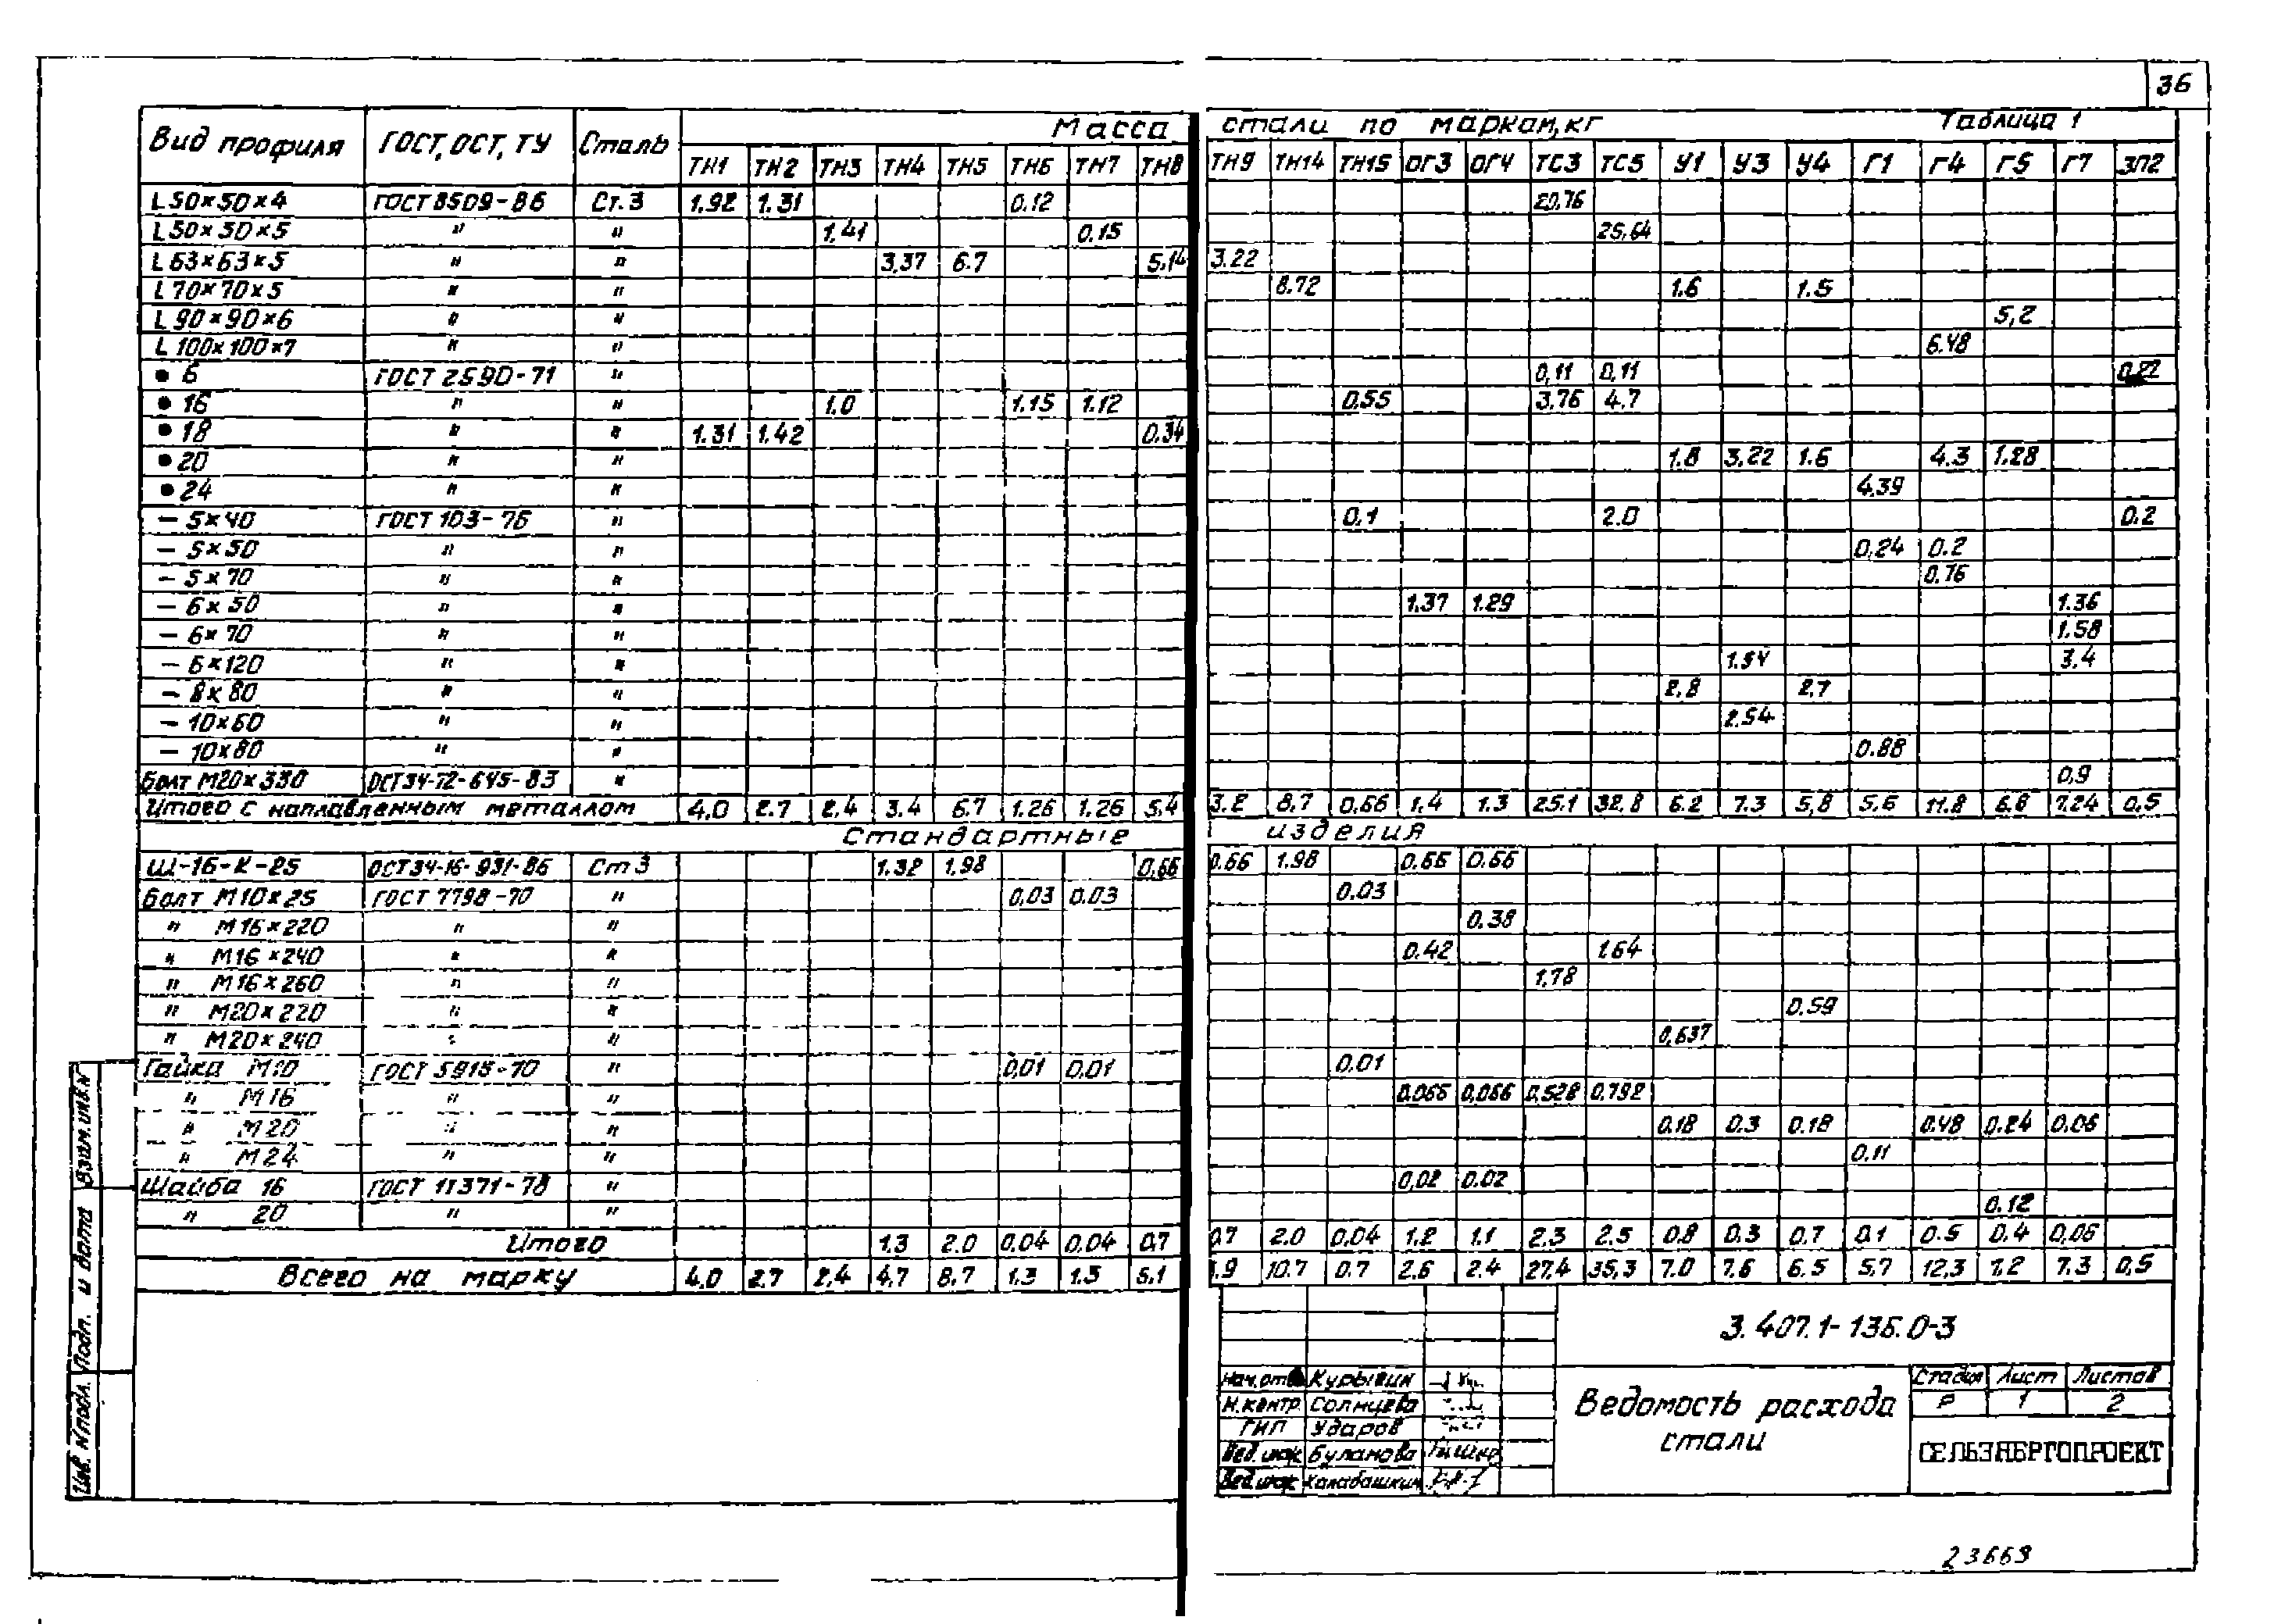 36
Масса стали по маркам, кг Таблица 1
Вид профиля ГОСТ, ОСТ, ТУ Сталь ТН1 ТН2 ТН3 ТН4 ТН5 ТН6 ТН7 ТН8 ТН9 ТН14 ТН15 ОГ3 ОГ4 ТС3 ТС5 У1 У3 У4 Г1 Г4 Г5 Г7 ЗП2
L 50×50×4 ГОСТ 8509-86 Ст.3 1.92 1.31 0.12 20,76
L 50×50×5 " " 1.41 0.15 25,64
L 63×63×5 " " 3,37 6.7 5,14 3.22
L 70×70×5 " " 8.72 1.6 1.5
L 90×90×6 " " 5,2
L 100×100×7 " " 6.48
● 6 ГОСТ 2590-71 " 0,11 0,11 0,22
● 16 " " 1.0 1.15 1.12 0.55 3.76 4.7
● 18 " " 1.31 1.42 0.34
● 20 " " 1.8 3.22 1.6 4.3 1.28
● 24 " " 4.39
— 5×40 ГОСТ 103-76 " 0.1 2.0 0.2
— 5×50 " " 0,24 0.2
— 5×70 " " 0.76
— 6×50 " " 1.37 1.29 1.36
— 6×70 " " 1.58
— 6×120 " " 1.54 3.4
— 8×80 " " 2.8 2.7
— 10×60 " " 2.54
— 10×80 " " 0.88
Болт М20×330 ОСТ34-72-645-83 " 0.9
Итого с наплавленным металлом 4.0 2.7 2.4 3.4 6.7 1.26 1.26 5.4 3.2 8.7 0.66 1.4 1.3 25.1 32.8 6.2 7.3 5,8 5.6 11.8 6.8 7.24 0.5
Стандартные изделия
Ш-16-К-25 ОСТ34-16-931-86 Ст 3 1.32 1,98 0.66 0.66 1.98 0.66 0.66
Болт М10×25 ГОСТ 7798-70 " 0,03 0.03 0.03
" М16×220 " " 0.38
" М16×240 " " 0.42 1.64
" М16×260 " " 1,78
" М20×220 " " 0.59
" М20×240 " " 0,637
Гайка М10 ГОСТ 5915-70 " 0,01 0,01 0.01
" М16 " " 0.066 0,066 0,528 0,792
" М20 " " 0.18 0.3 0.18 0.48 0.24 0.06
" М24 " " 0.11
Шайба 16 ГОСТ 11371-78 " 0,02 0.02
" 20 " " 0.12
Итого 1.3 2.0 0,04 0,04 0.7 0.7 2.0 0,04 1.2 1.1 2.3 2.5 0.8 0.3 0.7 0.1 0.5 0.4 0,06
Всего на марку 4.0 2.7 2.4 4.7 8.7 1.3 1.3 6.1 3.9 10.7 0.7 2.6 2.4 27.4 35,3 7.0 7.6 6.5 5.7 12,3 7.2 7.3 0,5
3.407.1-136.0-3
Нач.отд Курыгин
Н.контр Солнцева
ГИП Ударов
Вед.инж Буланова
Вед.инж Калабашкин
Ведомость расхода
стали
Стадия Лист Листов
Р 1 2
СЕЛЬЭНЕРГОПРОЕКТ
Инв. N подл. Подп. и дата Взам.инв.N
23669